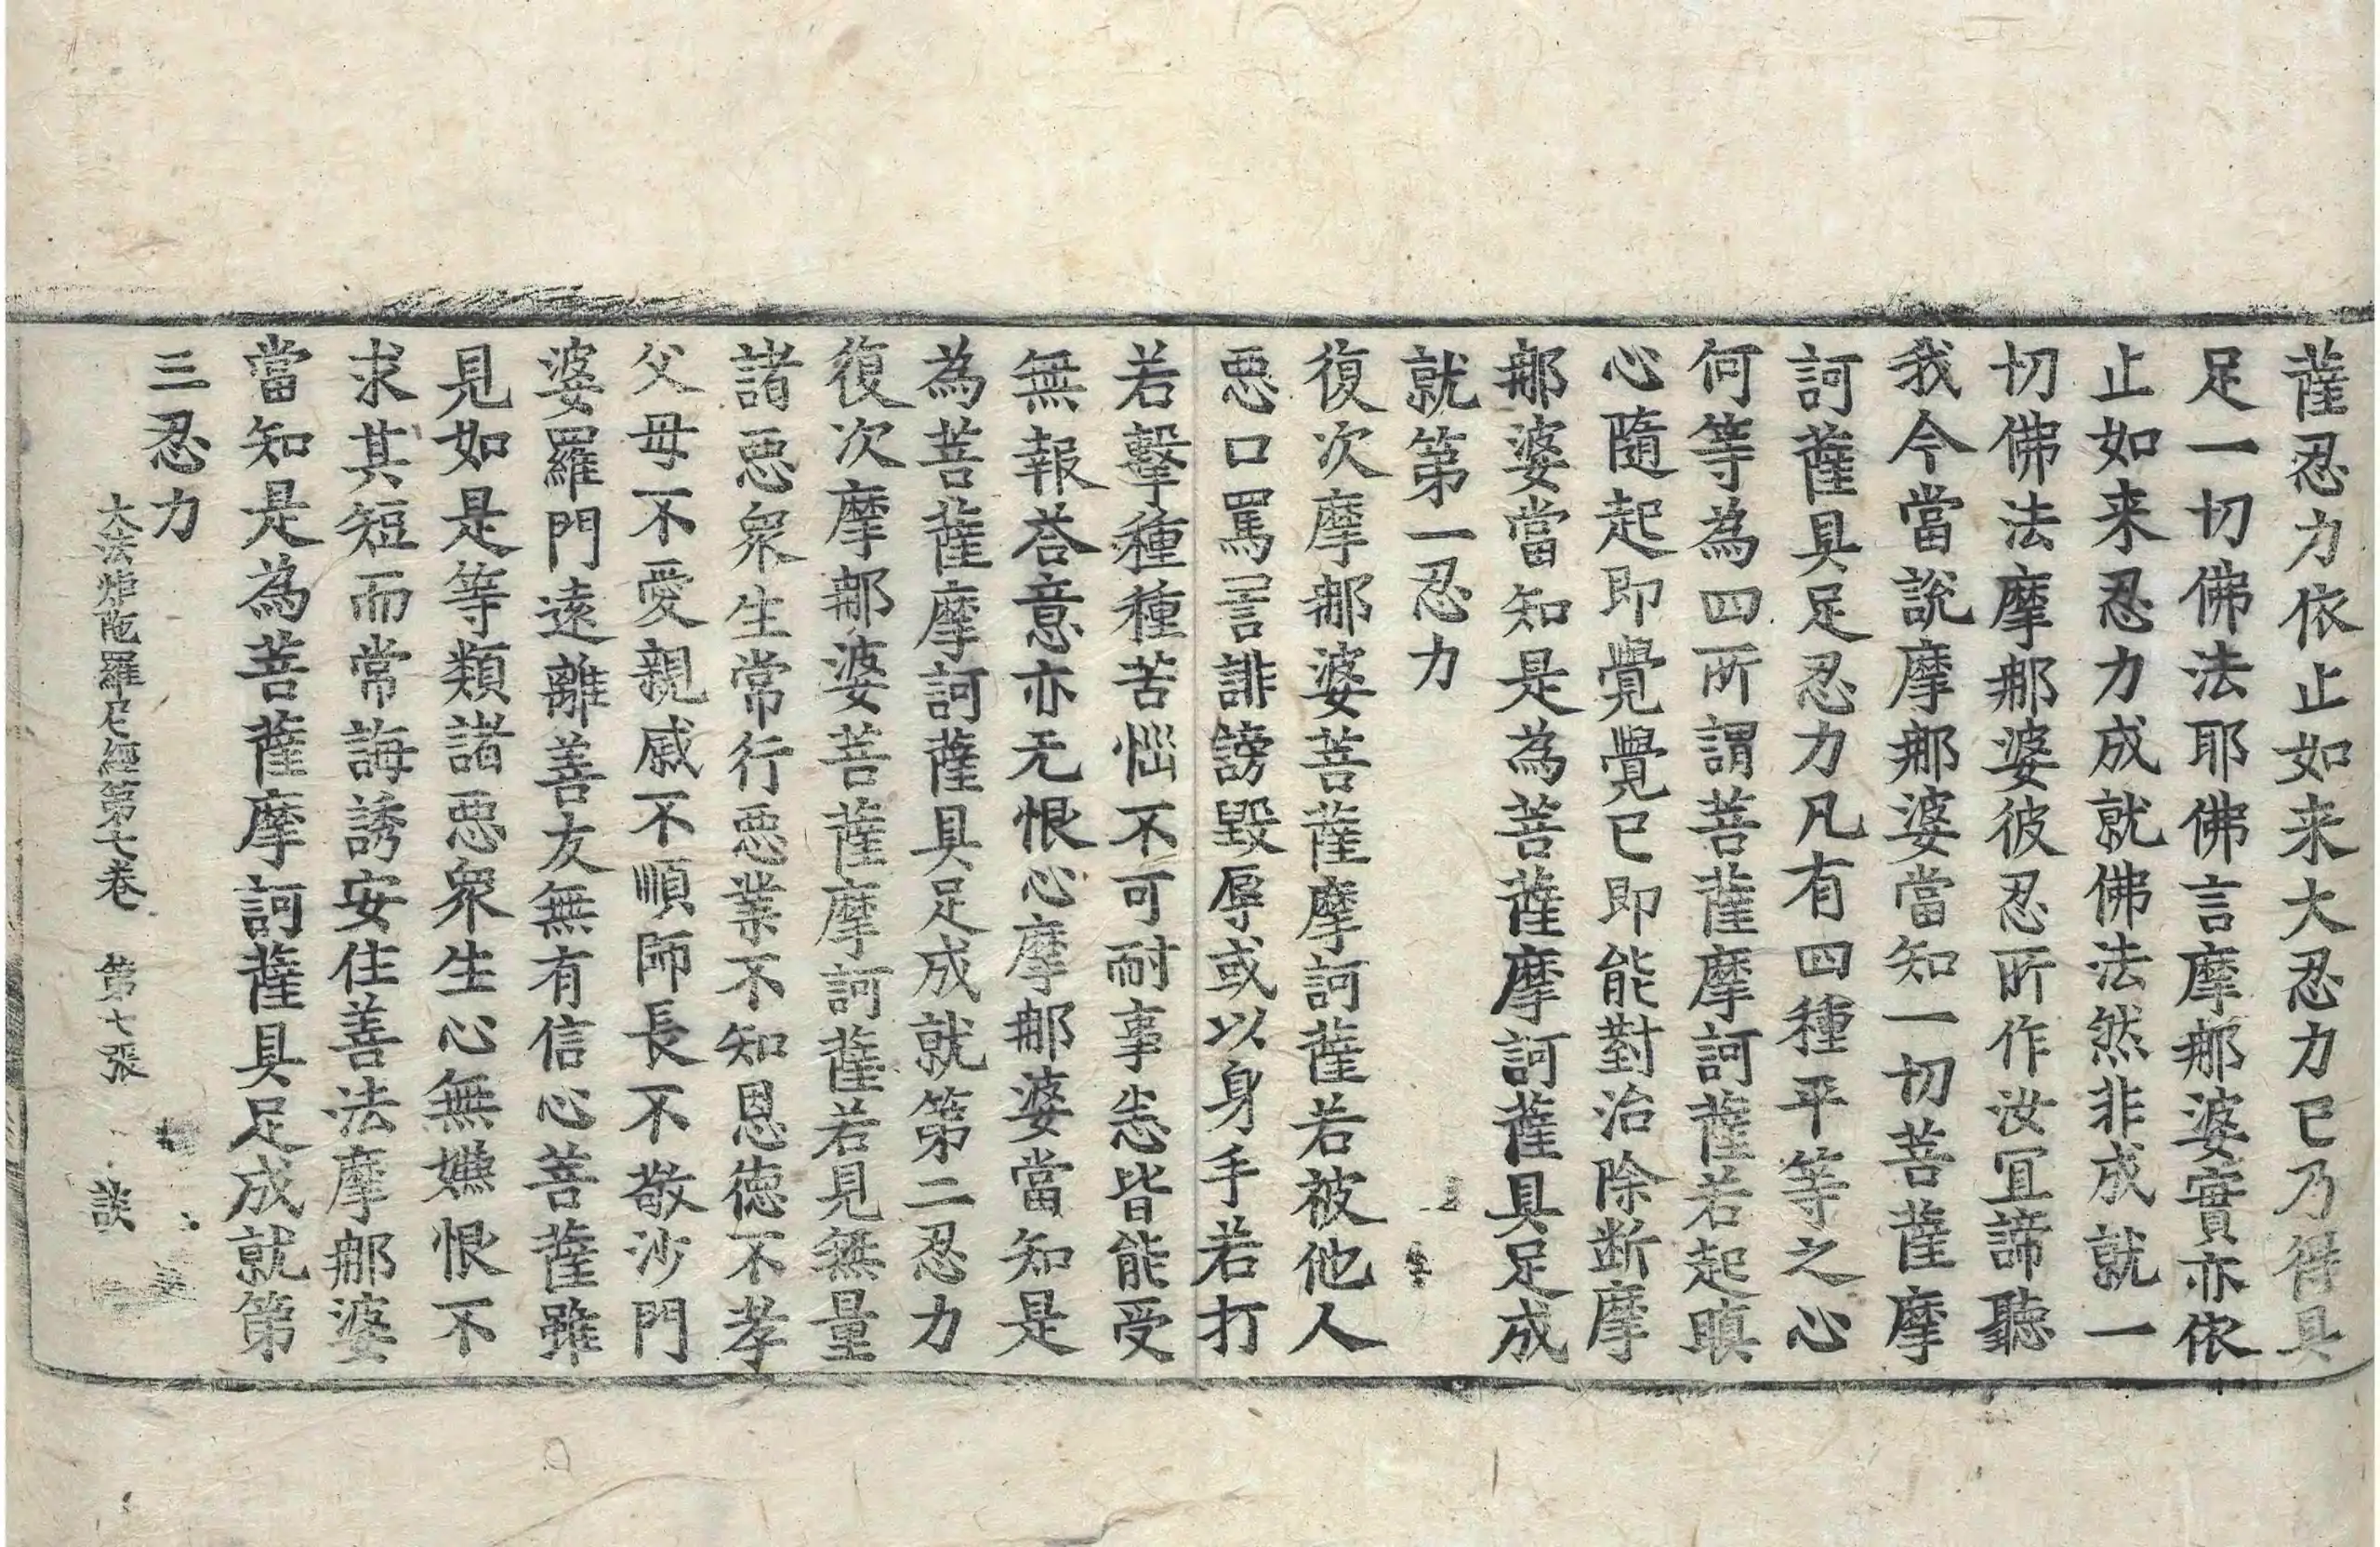 薩忍力依止如来大忍力已乃得具
足一切佛法耶佛言摩那婆實亦依
止如来忍力成就佛法然非成就一
切佛法摩那婆彼忍所作汝冝諦聽
我今當說摩那婆當知一切菩薩摩
訶薩具足忍力凡有四種平等之心
何等為四所謂菩薩摩訶薩若起瞋
心隨起即覺覺已即能對治除断摩
那婆當知是為菩薩摩訶薩具足成
就第一忍力
復次摩那婆菩薩摩訶薩若被他人
惡口罵詈誹謗毀辱或以身手若打
若擊種種苦惱不可耐事悉皆能受
無報荅意亦无恨心摩那婆當知是
為菩薩摩訶薩具足成就第二忍力
復次摩那婆菩薩摩訶薩若見無量
諸惡衆生常行惡業不知恩徳不孝
父母不愛親戚不順師長不敬沙門
婆羅門遠離善友無有信心菩薩雖
見如是等類諸惡衆生心無嫌恨不
求其短而常誨誘安住善法摩那婆
當知是為菩薩摩訶薩具足成就第
三忍力
大法炬陁羅尼經第七卷 第七張 談